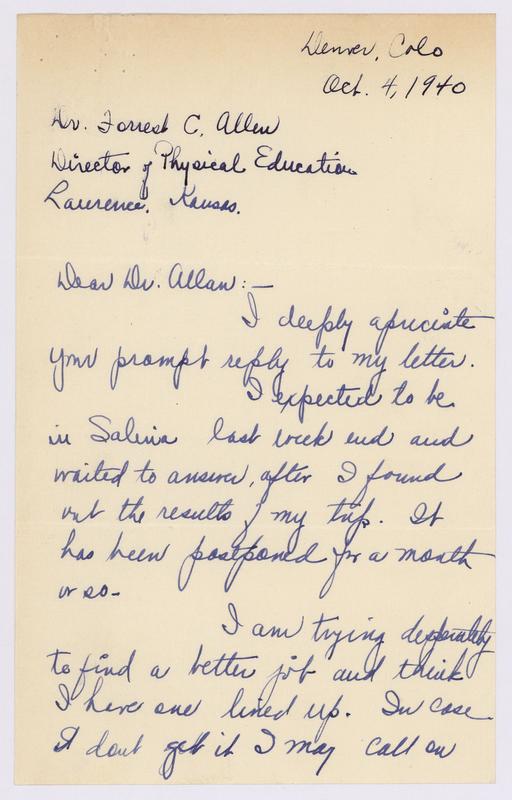 Denver, Colo
Oct. 4, 1940
Dr. Forrest C. Allen
Director of Physical Education
Lawrence, Kansas.
Dear Dr. Allan:—
I deeply apreciate
your prompt reply to my letter.
I expected to be
in Salina last week end and
waited to answer, after I found
out the results of my trip. It
has been postponed for a month
or so-
I am trying desperately
to find a better job and think
I have one lined up. In case
I dont get it I may call on